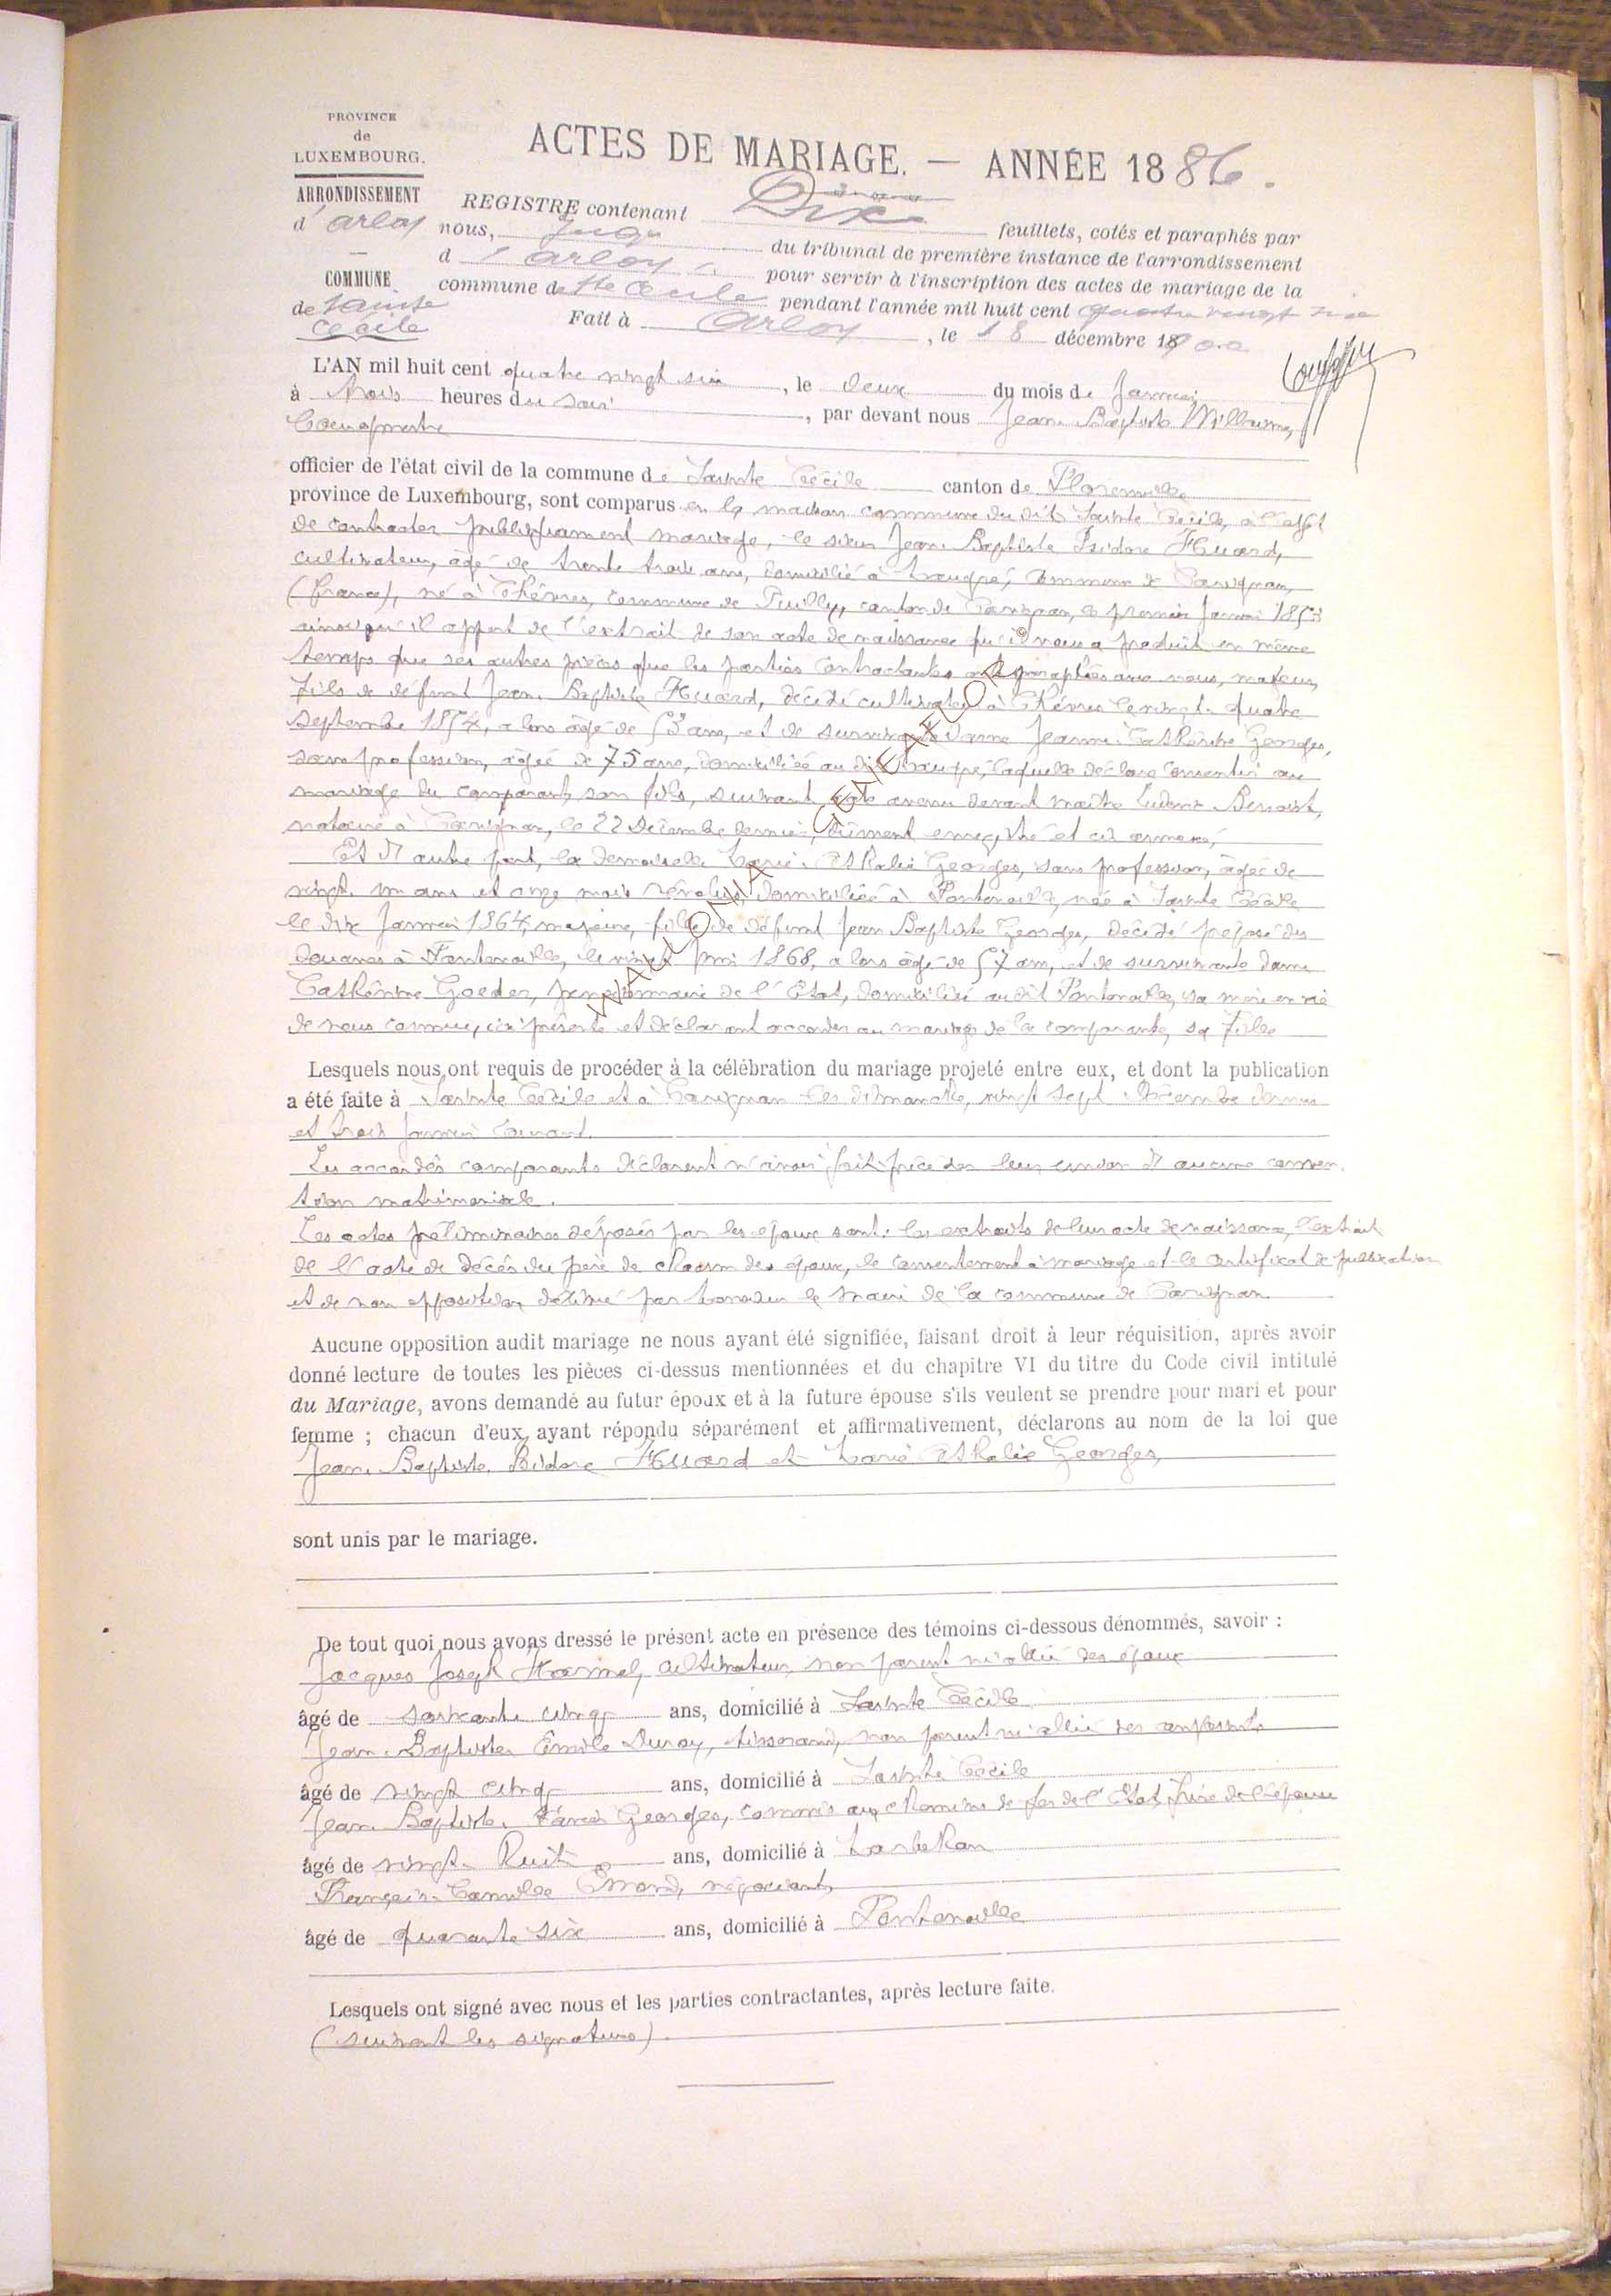 PROVINCE
de
LUXEMBOURG.
ARRONDISSEMENT
d'Arlon
COMMUNE
de Sainte
Cécile
ACTES DE MARIAGE. — ANNÉE 1886.
REGISTRE contenant Dix feuillets, cotés et paraphés par
nous, Juge du tribunal de première instance de l'arrondissement
d'Arlon pour servir à l'inscription des actes de mariage de la
commune de Ste Cécile pendant l'année mil huit cent quatre vingt six
Fait à Arlon, le 18 décembre 18
L'AN mil huit cent quatre vingt six, le deux du mois de Janvier
à trois heures du soir, par devant nous Jean Baptiste
officier de l'état civil de la commune de Sainte Cécile canton de Florenville
province de Luxembourg, sont comparus en la maison commune du dit Sainte Cécile, à l'effet
de contracter publiquement mariage, le sieur Jean Baptiste Isidore Huard,
cultivateur, âgé de trente trois ans, domicilié à commune de Carignan,
(France), né à Thêvres, commune de Puilly, canton de Carignan, le premier Janvier 1853
ainsi qu'il appert de l'extrait de son acte de naissance qu'il nous a produit en même
temps que ses autres pièces que les parties contractantes ont paraphées avec nous, majeur,
fils de défunt Jean Baptiste Huard, décédé cultivateur à le vingt quatre
septembre 1854, alors âgé de 53 ans, et de survivante dame Jeanne Cathérine Georges,
sans profession, âgée de 75 ans, domiciliée au dit laquelle déclare consentir au
mariage du comparant, son fils, suivant acte avenu devant maître Benoist,
notaire à Carignan, le 22 Décembre dernier, dûment enregistré et ci annexé,
Et d'autre part, la demoiselle Marie Athalie Georges, sans profession, âgée de
vingt un ans et onze mois révolus, domiciliée à Fontenoille, née à Sainte Cécile
le dix Janvier 1864, majeure, fille de défunt Jean Baptiste Georges, décédé préposé des
douanes à Fontenoille, le vingt 1868, alors âgé de 57 ans, et de survivante dame
Cathérine Goeder, pensionnaire de l'Etat, domiciliée audit Fontenoille, sa mère en vie
de nous connue, ici présente et déclarant accorder au mariage de la comparante, sa fille
WALLONIA GENEAFLOR
Lesquels nous ont requis de procéder à la célébration du mariage projeté entre eux, et dont la publication
a été faite à Sainte Cécile et à Carignan les dimanche, vingt sept Décembre dernier
et trois Janvier courant.
Les accordés comparants déclarent n'avoir fait précéder leur union d'aucune conven-
tion matrimoniale.
Les actes préliminaires déposés par les époux sont: les extraits de leur acte de naissance, l'extrait
de l'acte de décès du père de chacun des époux, le consentement à mariage et le certificat de publication
et de non opposition délivré par Monsieur le Maire de la commune de Carignan.
Aucune opposition audit mariage ne nous ayant été signifiée, faisant droit à leur réquisition, après avoir
donné lecture de toutes les pièces ci-dessus mentionnées et du chapitre VI du titre du Code civil intitulé
du Mariage, avons demandé au futur époux et à la future épouse s'ils veulent se prendre pour mari et pour
femme ; chacun d'eux ayant répondu séparément et affirmativement, déclarons au nom de la loi que
Jean Baptiste Isidore Huard et Marie Athalie Georges,
sont unis par le mariage.
De tout quoi nous avons dressé le présent acte en présence des témoins ci-dessous dénommés, savoir :
Jacques Joseph Harmel, cultivateur, non parent ni allié des époux
âgé de soixante cinq ans, domicilié à Sainte Cécile
Jean Baptiste Émile Duroy, tisserand, non parent ni allié des conjoints
âgé de vingt cinq ans, domicilié à Sainte Cécile
Jean Baptiste Georges, commis aux chemins de fer de l'Etat, frère de l'épouse
âgé de vingt huit ans, domicilié à Marbehan
François Camille négociant,
âgé de quarante six ans, domicilié à Fontenoille
Lesquels ont signé avec nous et les parties contractantes, après lecture faite.
(suivent les signatures).